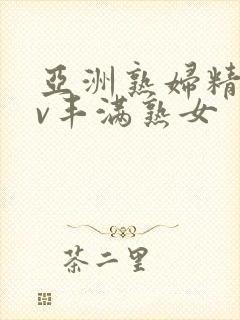 亞洲熟婦精
v丰滿熟女
茶二里